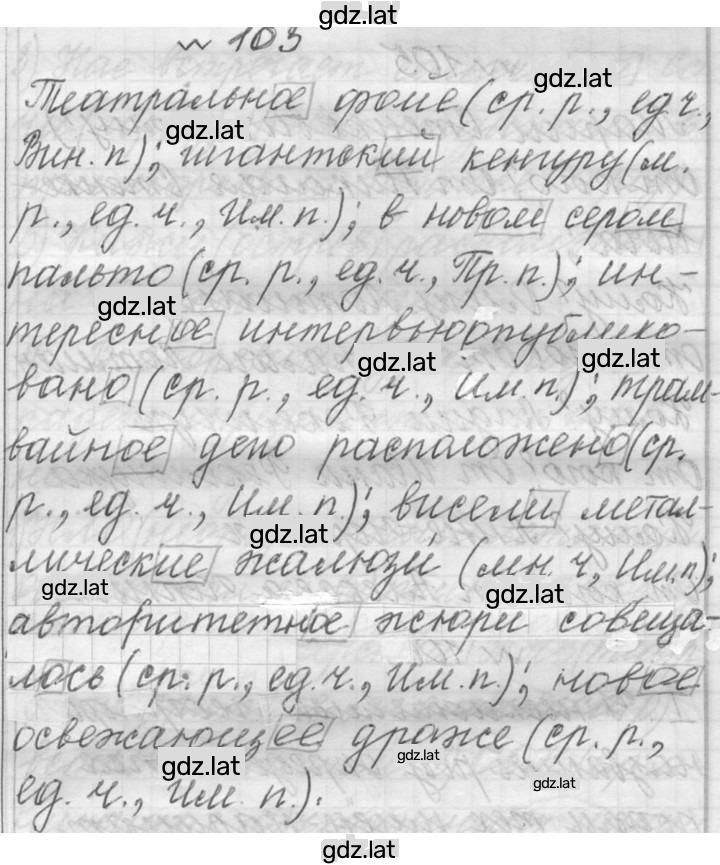 gdz.lat
№ 103
gdz.lat
Театральное фойе (ср. р., ед. ч.,
gdz.lat
Вин. п); гигантский кенгуру (м.
р., ед. ч., Им. п.); в новом сером
пальто (ср. р., ед. ч., Пр. п.); ин-
gdz.lat
тересное интервью опублико-
gdz.lat gdz.lat
вано (ср. р., ед. ч., Им. п.); трам-
вайное депо расположено (ср.
р., ед. ч., Им. п.); висели метал-
gdz.lat
лические жалюзи (мн. ч, Им. п);
gdz.lat gdz.lat
авторитетное жюри совеща-
лось (ср. р., ед. ч., Им. п.); новое
освежающее драже (ср. р.,
gdz.lat gdz.lat
ед. ч., Им. п.).
gdz.lat
gdz.lat